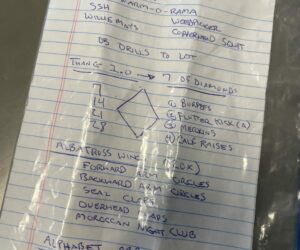 WARM-O-RAMA
SSH
WILLIE MAYS
WOODPECKER
COPPERHEAD SQUAT
DB DRILLS TO LOT
THANG 2.0 → 7 OF DIAMONDS
7
14
21
28
① BURPEES
② FLUTTER KICK (2)
③ MERKINS
④ CALF RAISES
ALBATROSS WING
FORWARD ARM CIRCLES
BACKWARD ARM CIRCLES
SEAL CLAPS
OVERHEAD CLAPS
MOROCCAN NIGHT CLUB
ALPHABET